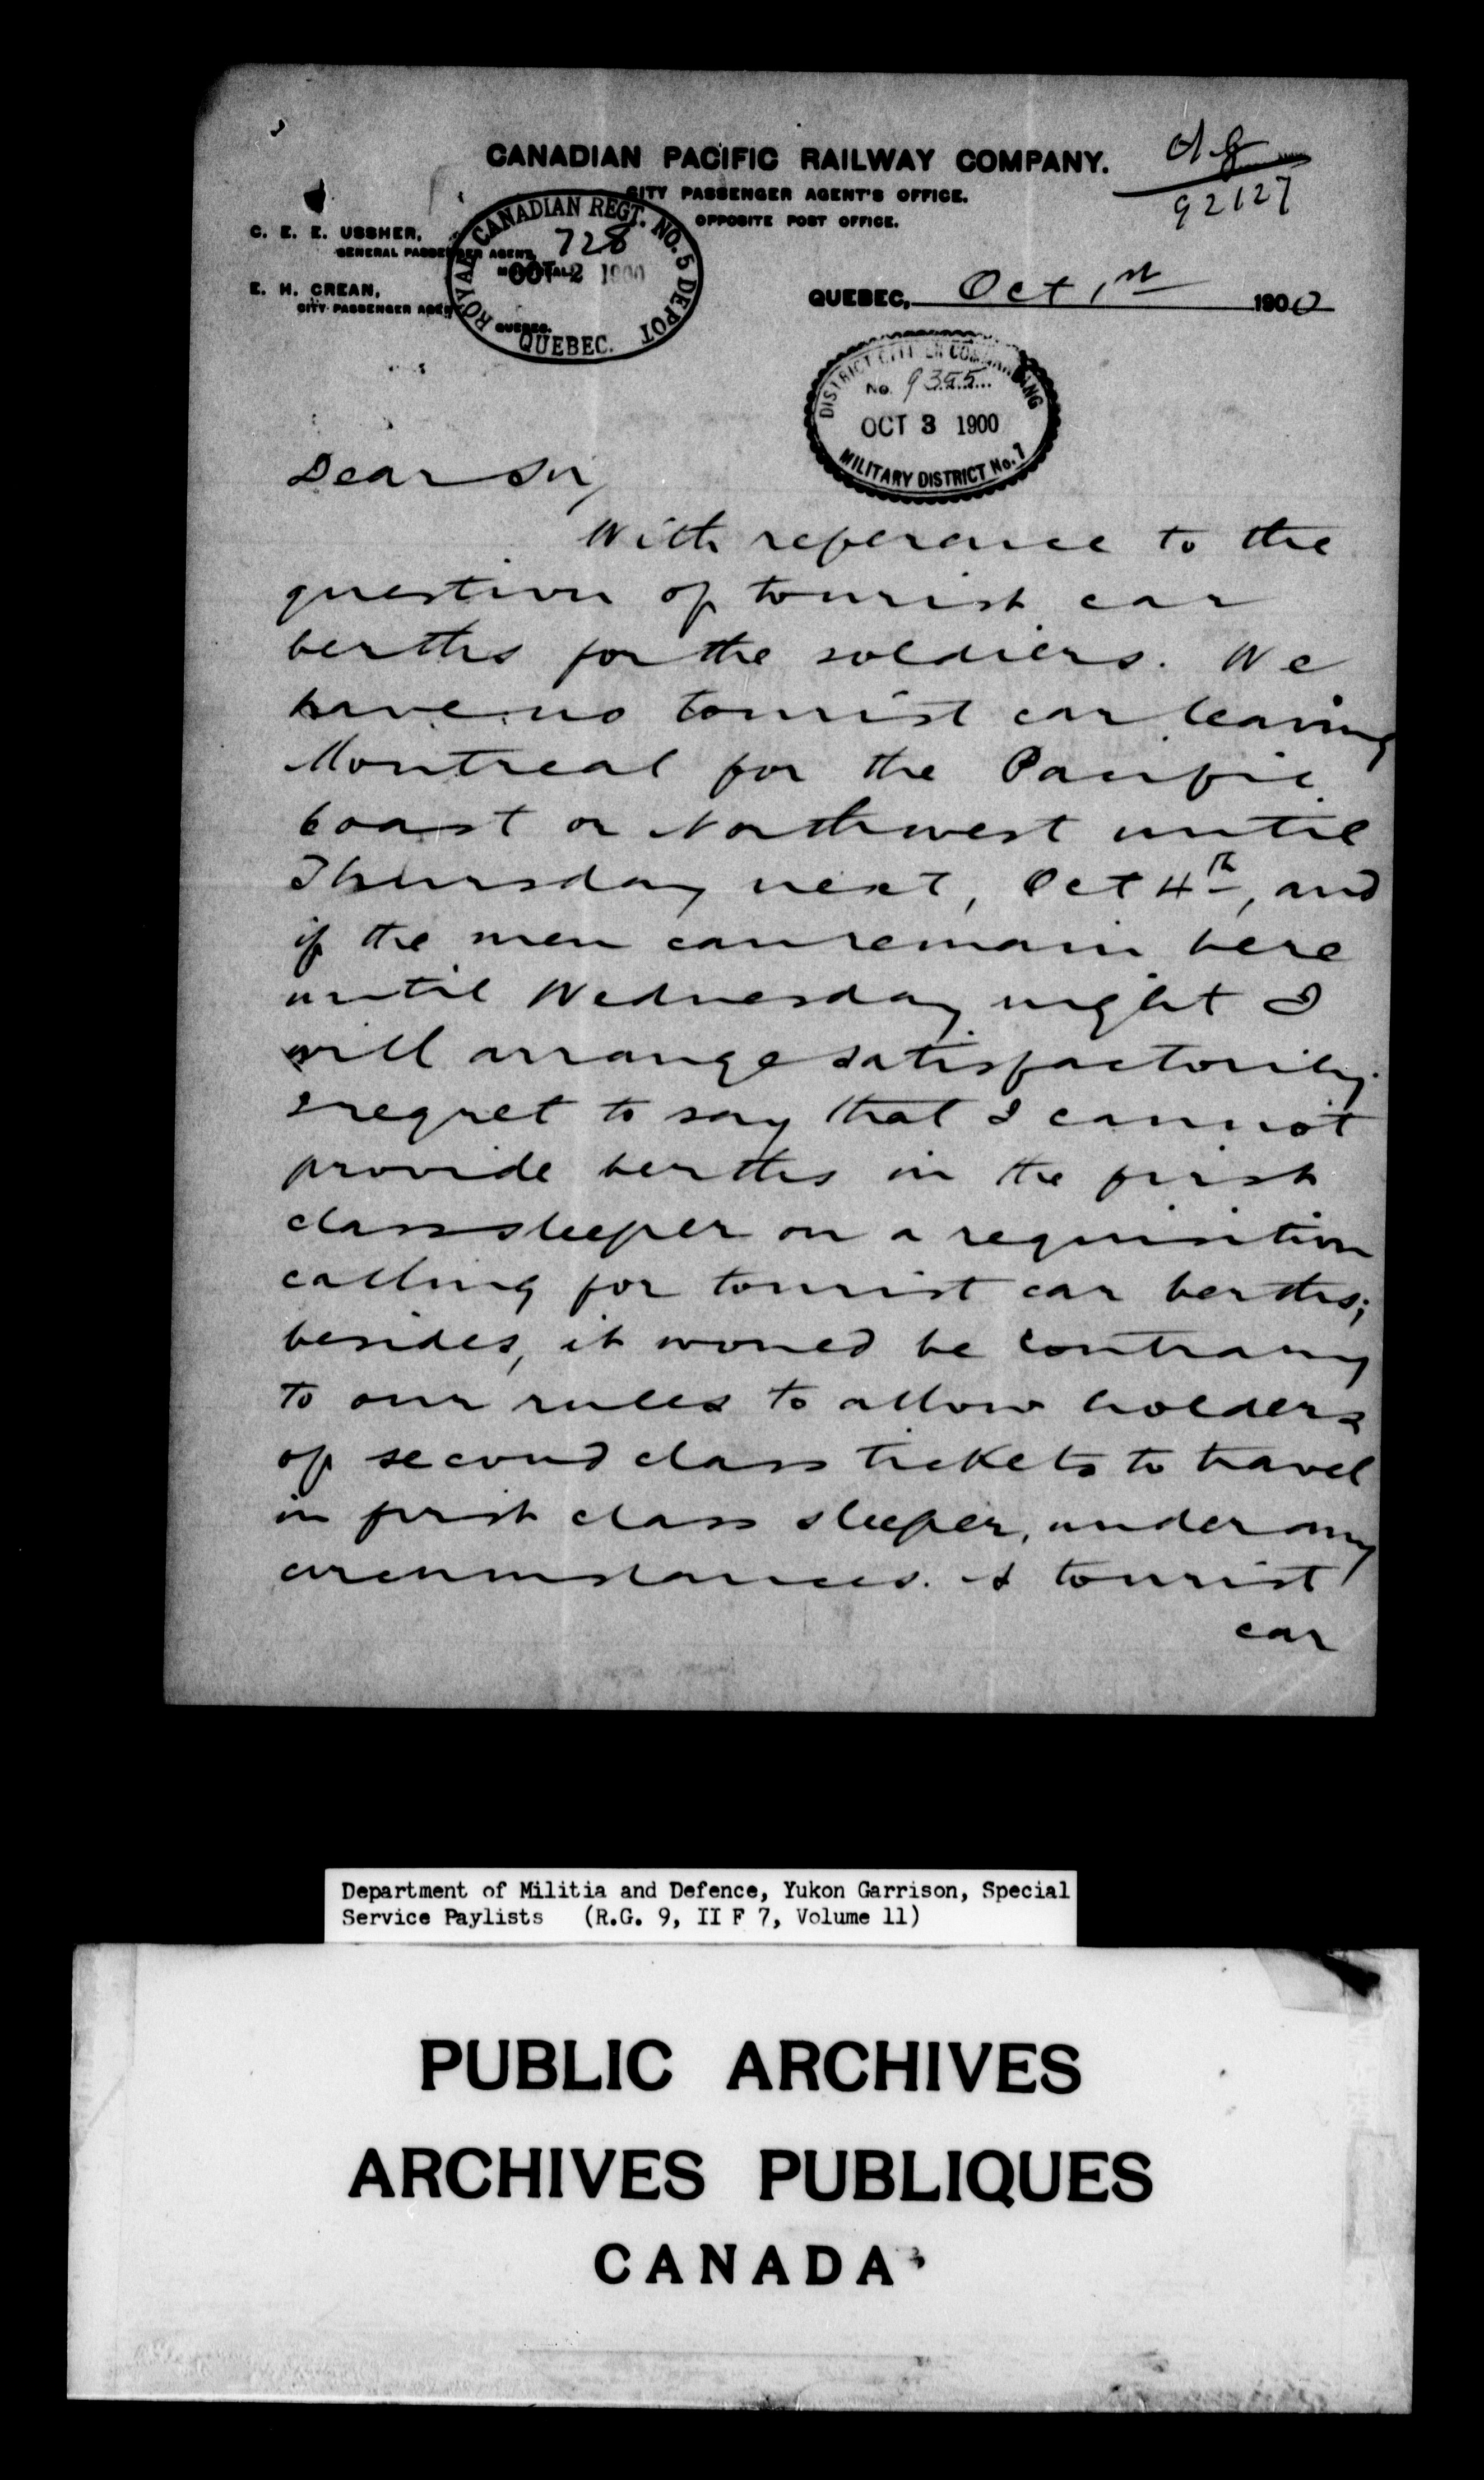 CANADIAN PACIFIC RAILWAY COMPANY.
CITY PASSENGER AGENT'S OFFICE.
OPPOSITE POST OFFICE.
92127
C. E. E. USSHER,
GENERAL PASSENGER AGENT,
MONTREAL.
E. H. CREAN,
CITY PASSENGER AGENT
QUEBEC.
ROYAL CANADIAN REGT. NO. 5 DEPOT
728
OCT 2 1900
QUEBEC.
QUEBEC, Oct 1st 1900
DISTRICT OFFICER COMMANDING
No. 9355
OCT 3 1900
MILITARY DISTRICT No. 7
Dear Sir,
With referance to the
question of tourist car
berths for the soldiers. We
have no tourist car leaving
Montreal for the Pacific
Coast or Northwest until
Thursday next, Oct 4th, and
if the men can remain here
until Wednesday night I
will arrange satisfactorily.
I regret to say that I cannot
provide berths in the first
class sleeper on a requisition
calling for tourist car berths;
besides, it would be contrary
to our rules to allow holders
of second class tickets to travel
in first class sleeper, under any
circumstances. A tourist
car
Department of Militia and Defence, Yukon Garrison, Special
Service Paylists (R.G. 9, II F 7, Volume 11)
PUBLIC ARCHIVES
ARCHIVES PUBLIQUES
CANADA